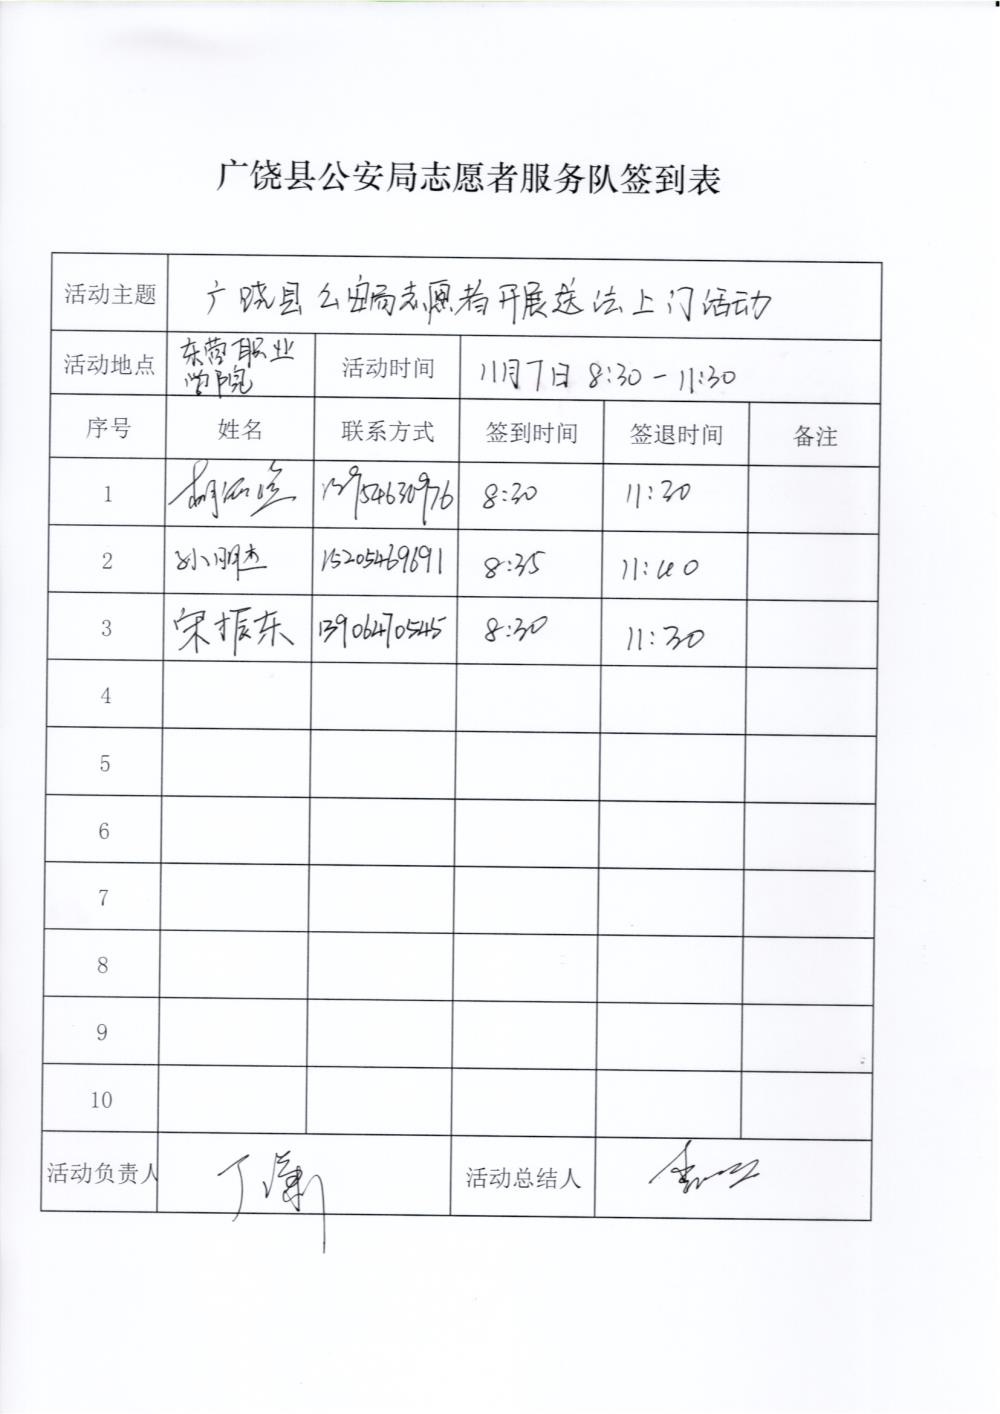 广饶县公安局志愿者服务队签到表
活动主题 广饶县公安局志愿者开展送法上门活动
活动地点 东营职业
学院 活动时间 11月7日 8:30-11:30
序号 姓名 联系方式 签到时间 签退时间 备注
1 13954630976 8:30 11:30
2 孙明杰 15205469691 8:35 11:40
3 宋振东 13906470545 8:30 11:30
4
5
6
7
8
9
10
活动负责人 丁 活动总结人